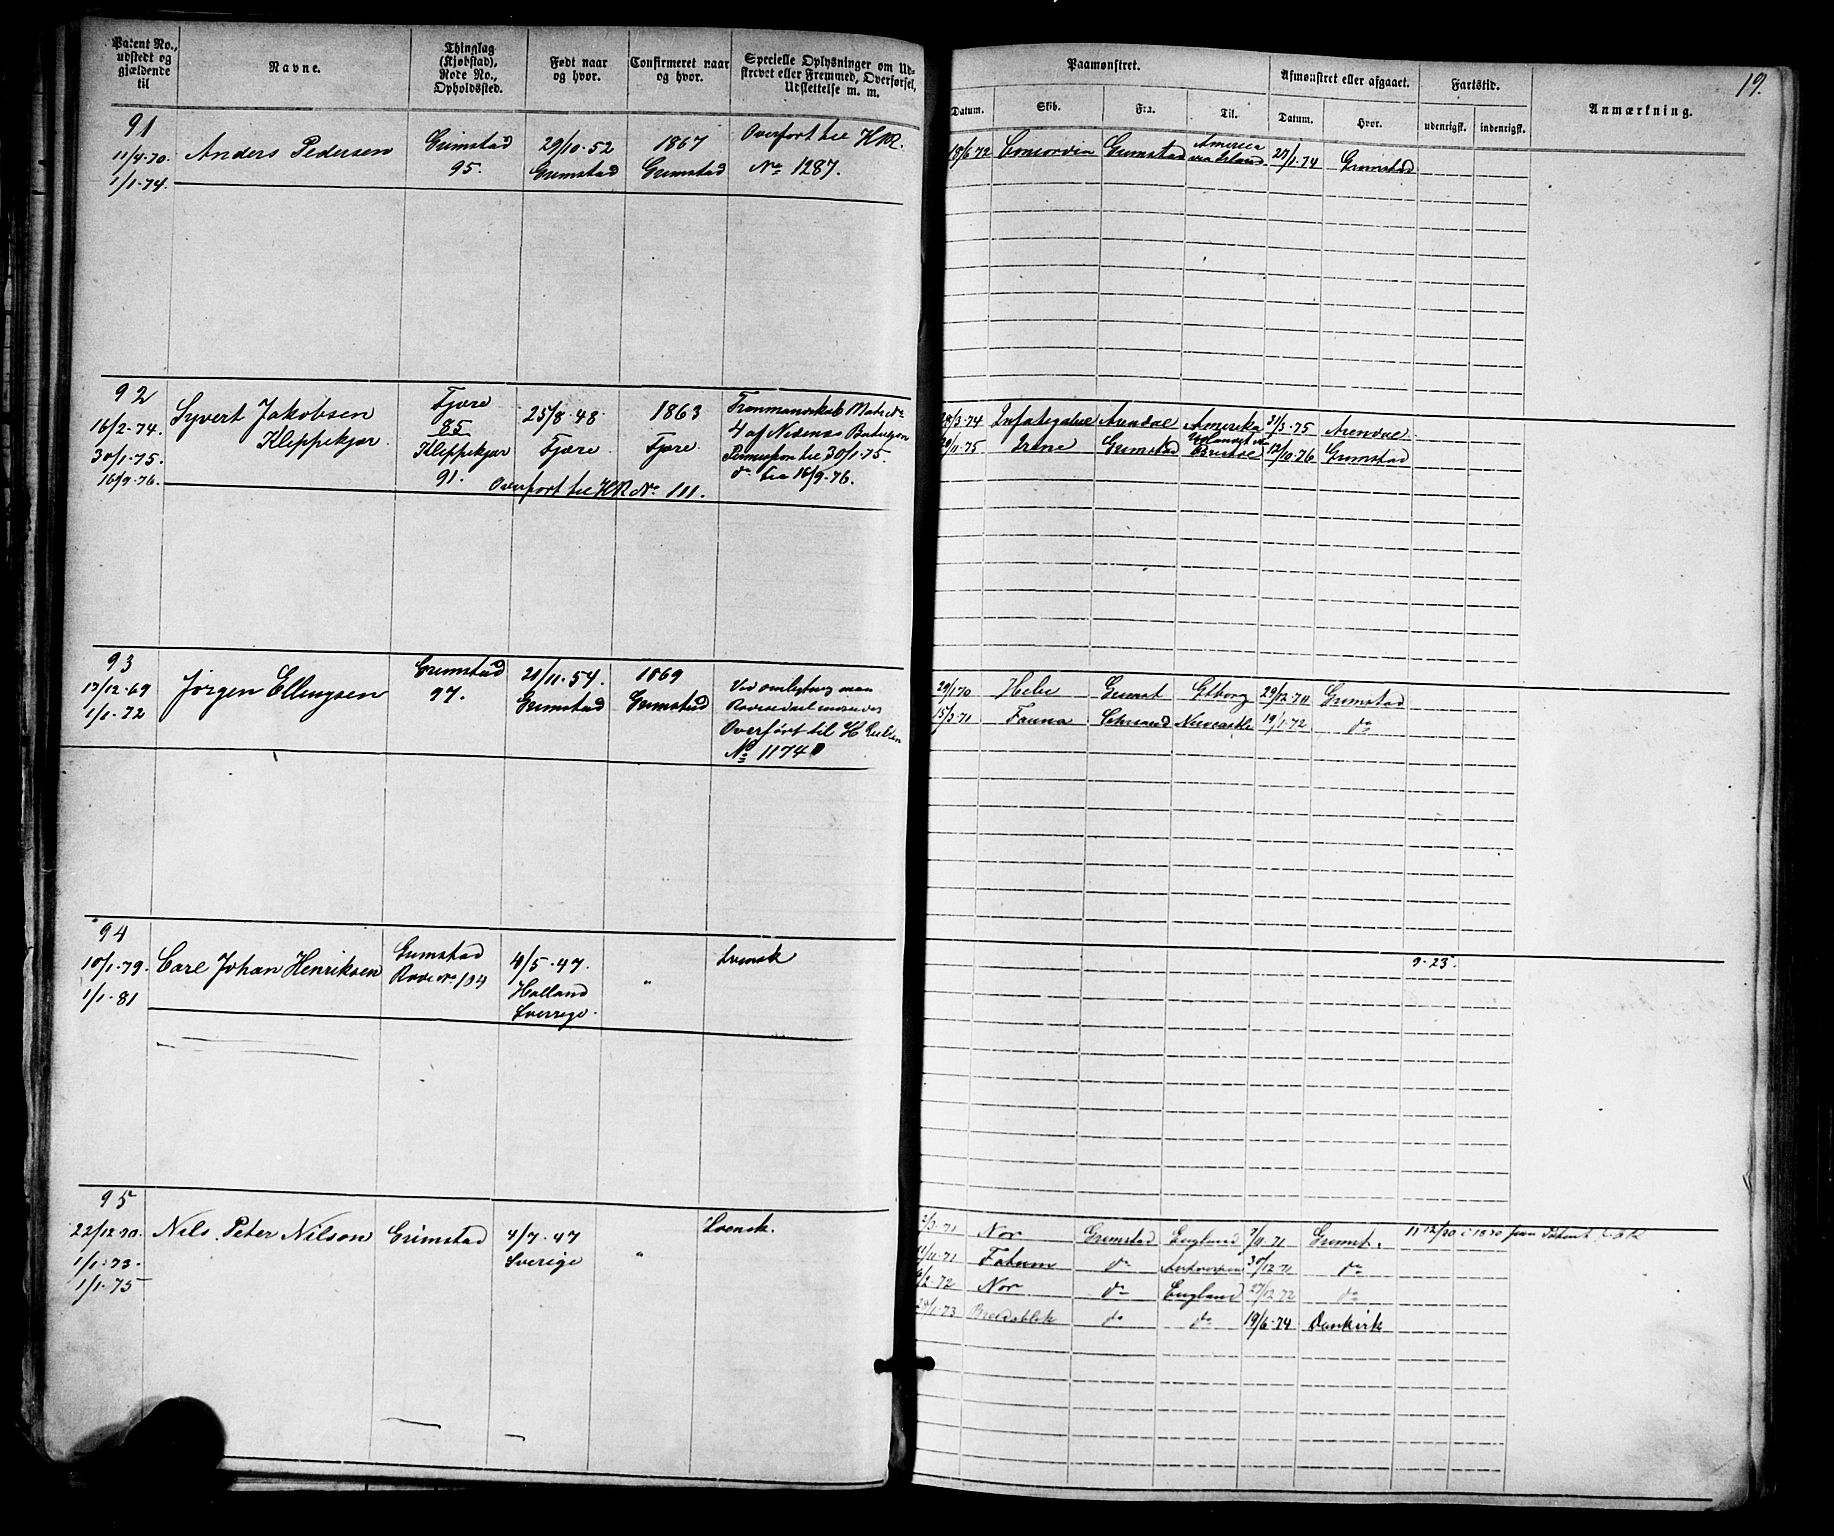 Patent No., udstedt og gjældende til
Navne.
Thinglag (Kjøbstad), Rode No., Opholdssted.
Født naar og hvor.
Confirmeret naar og hvor.
Specielle Oplysninger om Udskrevet eller Fremmed, Overførsel, Udslettelse m. m.
Paamønstret.
Datum. Skib. Fra. Til.
Afmønstret eller afgaaet.
Datum. Hvor.
Fartstid.
udenrigsk. indenrigsk.
Anmærkning.
19.
91
11/4.70.
1/1.74.
Anders Pedersen
Grimstad
95.
29/10.52
Grimstad
1867
Grimstad
Overført til HR.
No 1287.
18/6 72 Concordia Grimstad America 27/1.74 Grimstad
92
16/2.74.
30/1.75.
16/9.76.
Syvert Jakobsen
Klippekjær
Fjære
85
Klippekjær
91.
25/8.48
Fjære
1863
Fjære
4 af Nedenæs
Permission til 30/1.75.
do til 16/9.76.
Overført til HR No 111.
28/3.74 Arendal Amerika 3/3.75 Arendal
/11.75 Irene Grimstad Bristol 12/10.76 Grimstad
93
17/12.69
1/1.72
Jørgen Ellingsen
Grimstad
97.
21/11.54.
Grimstad
1869
Grimstad
Ved omlægtning
Overført til H Rullen
No 1174
29/1 70 Hebe Grimst Gtborg 29/12.70 Grimstad
15/3.71 Fauna Newcastle 19/1.72 do
94
10/1.79.
1/1.81
Carl Johan Henriksen
Grimstad
Rode No 194
4/5.47.
Halland
Sverrige.
"
Svensk
9-23.
95
22/12.70.
1/1.73.
1/1.75
Nils Peter Nilson
Grimstad
4/7.47
Sverige
"
Svensk.
2/3.71 Nor Grimstad England 7/11.71 Grimst.
/11.71 Fatum do Antwerpen 30/12.71 do
/2.72 Nor do England 27/12.72 do
/1.73 Breidablik do do 19/6.74 Dunkirk